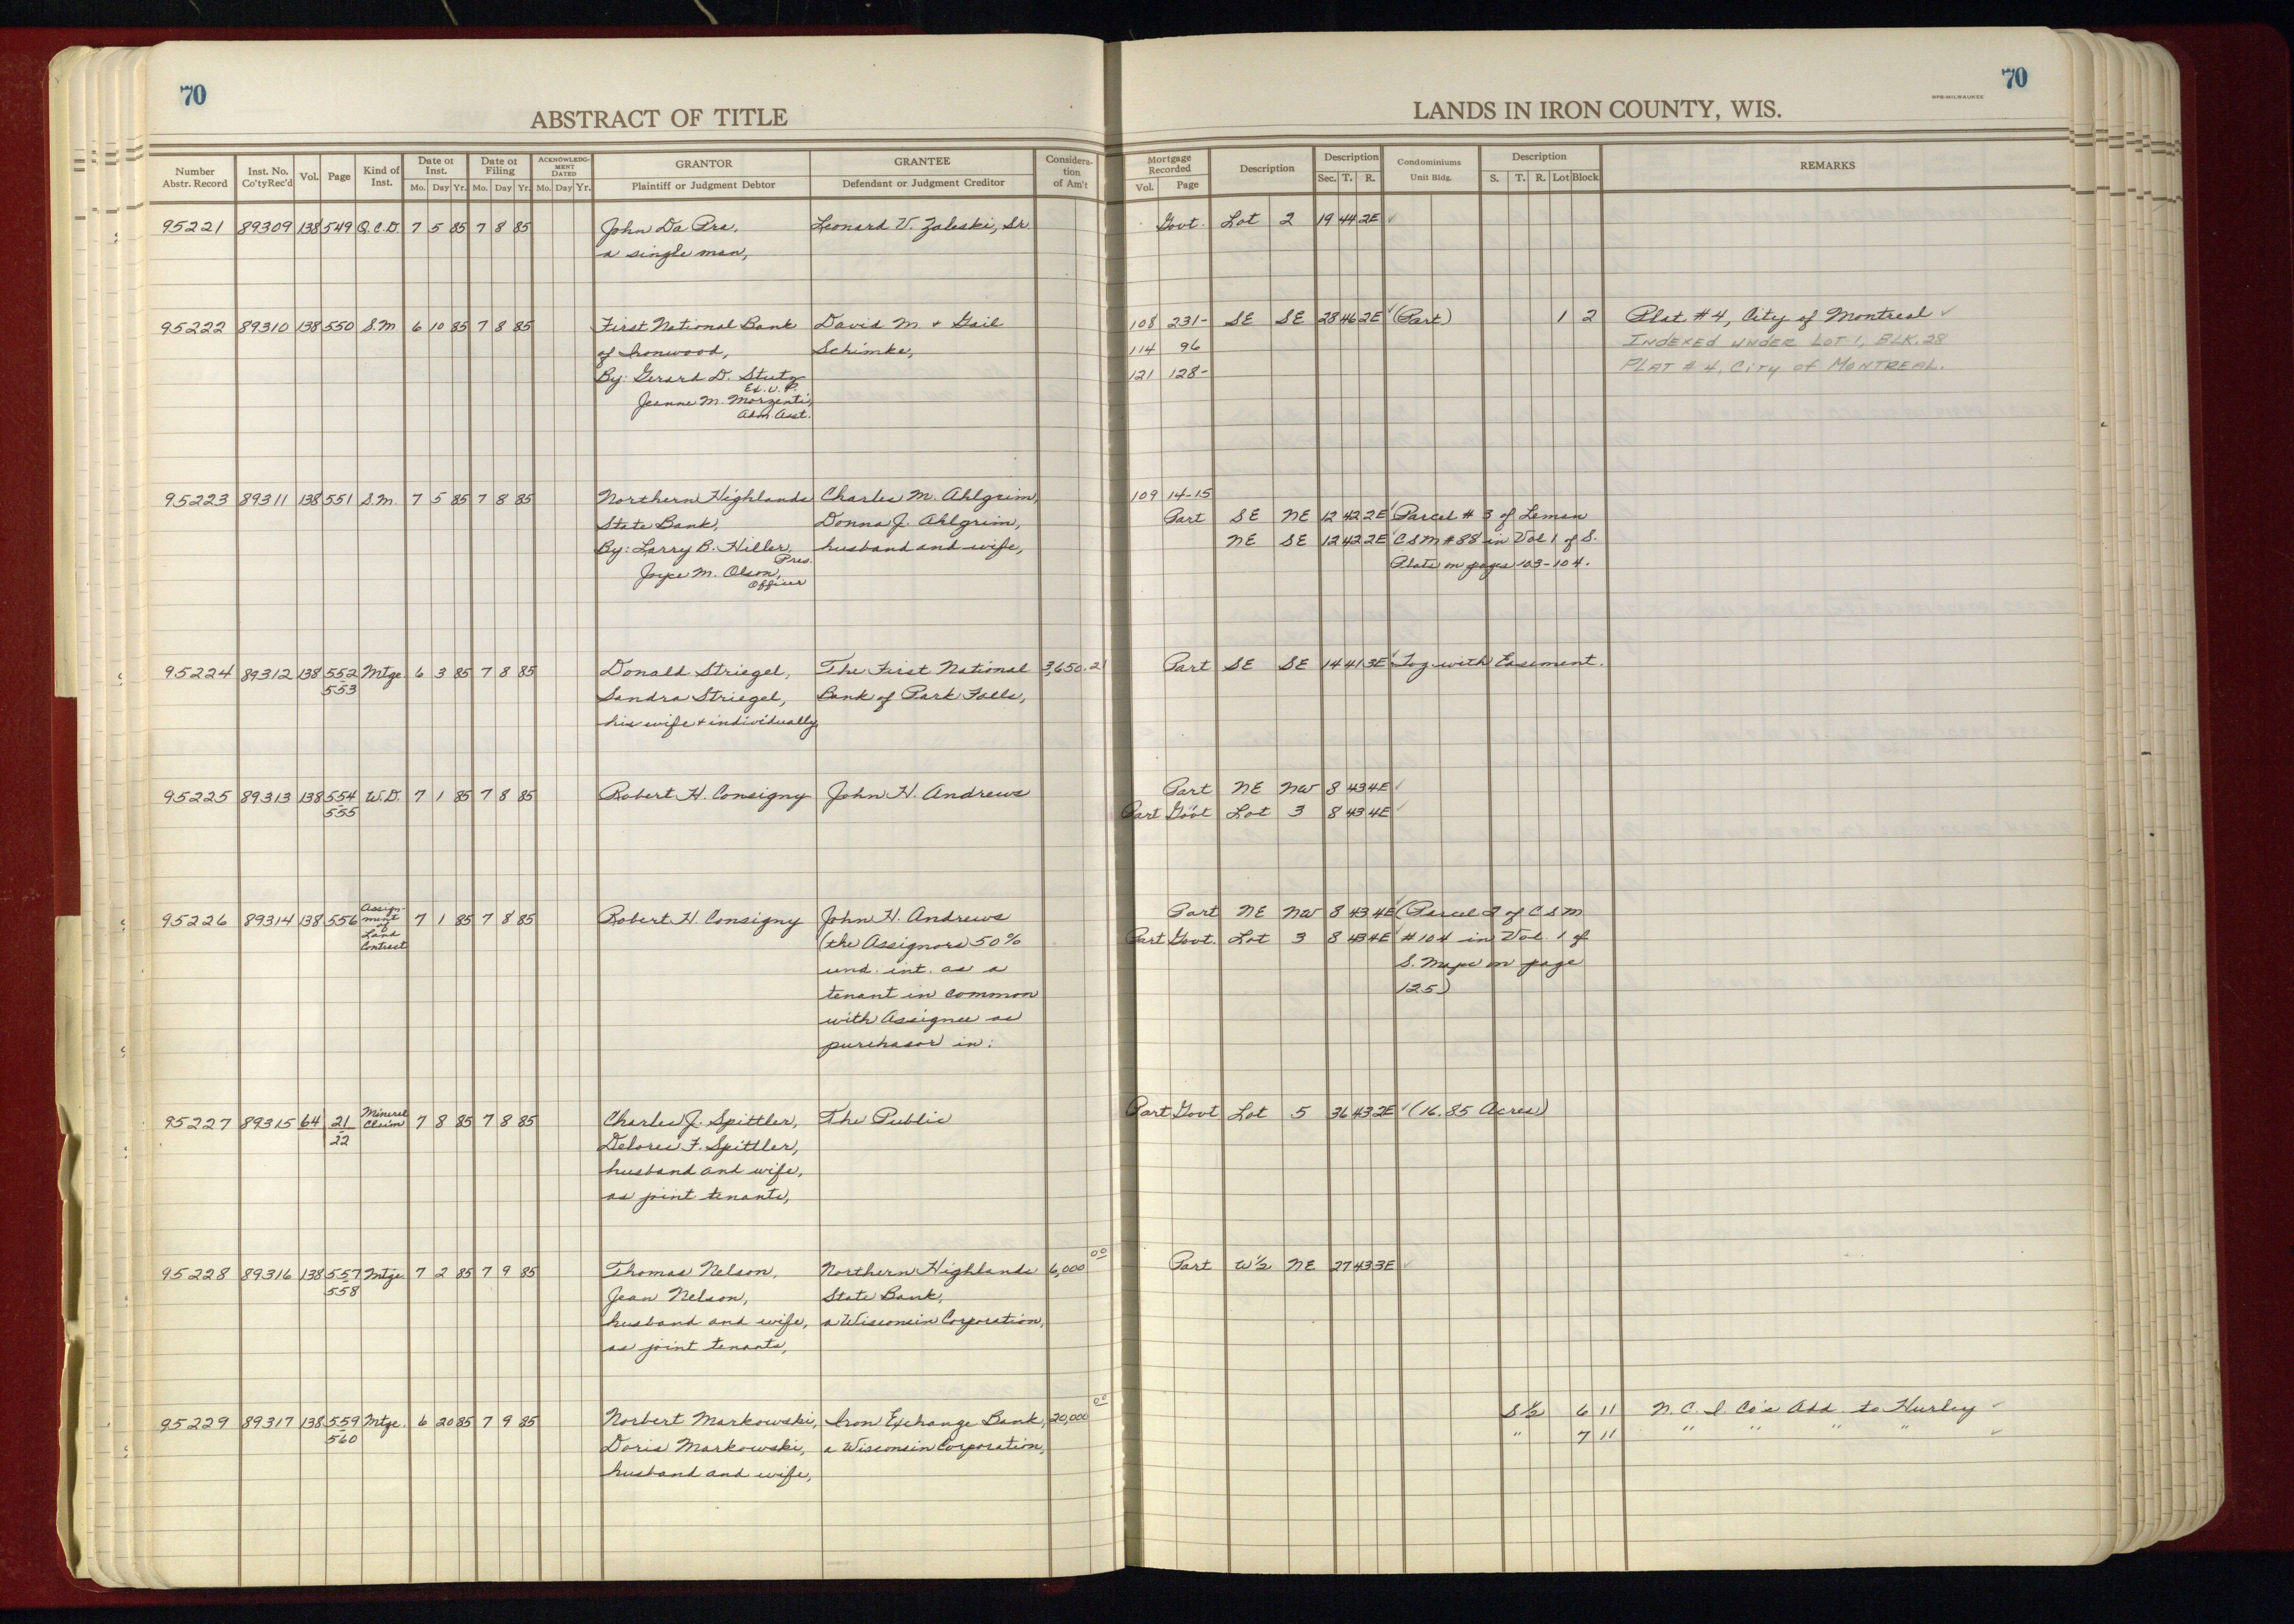 70
ABSTRACT OF TITLE
Number Abstr. Record
Inst. No. Co'tyRec'd
Vol.
Page
Kind of Inst.
Date of Inst.
Mo. Day Yr.
Date of Filing
Mo. Day Yr.
ACKNOWLEDGMENT DATED
Mo. Day Yr.
GRANTOR
Plaintiff or Judgment Debtor
GRANTEE
Defendant or Judgment Creditor
Consideration of Am't
95221 89309 138 549 Q.C.D. 7 5 85 7 8 85 John Da Pra, Leonard V. Zaleski, Sr.
a single man,
95222 89310 138 550 S.M. 6 10 85 7 8 85 First National Bank David M. + Gail
of Ironwood, Schimke,
By: Gerard D. Stutz
Ex. V. P.
Jeanne M. Morzenti,
Adm. Asst.
95223 89311 138 551 S.M. 7 5 85 7 8 85 Northern Highlands Charles M. Ahlgrim,
State Bank, Donna J. Ahlgrim,
By: Larry B. Hiller, husband and wife,
Pres.
Joyce M. Olson,
Officer
95224 89312 138 552 Mtge. 6 3 85 7 8 85 Donald Striegel, The First National 3,650.21
553 Sandra Striegel, Bank of Park Falls,
his wife + individually,
95225 89313 138 554 W.D. 7 1 85 7 8 85 Robert H. Consigny John H. Andrews
555
95226 89314 138 556 Assignment of Land Contract 7 1 85 7 8 85 Robert H. Consigny John H. Andrews
(the Assignors 50%
und. int. as a
tenant in common
with Assignee as
purchasor in:
95227 89315 64 21 Mineral Claim 7 8 85 7 8 85 Charles J. Spittler, The Public
22 Delores F. Spittler,
husband and wife,
as joint tenants,
95228 89316 138 557 Mtge. 7 2 85 7 9 85 Thomas Nelson, Northern Highlands 6,000 00
558 Jean Nelson, State Bank,
husband and wife, a Wisconsin Corporation,
as joint tenants,
95229 89317 138 559 Mtge. 6 20 85 7 9 85 Norbert Markowski, Iron Exchange Bank, 20,000 00
560 Doris Markowski, a Wisconsin Corporation,
husband and wife,
70
LANDS IN IRON COUNTY, WIS.
Mortgage Recorded
Vol. Page
Description
Description
Sec. T. R.
Condominiums
Unit Bldg.
Description
S. T. R. Lot Block
REMARKS
Govt. Lot 2 19 44 2E ✓
108 231- SE SE 28 46 2E ✓ (Part) 1 2 Plat #4, City of Montreal ✓
114 96 INDEXED UNDER LOT 1, BLK. 28
121 128- PLAT #4, CITY OF MONTREAL.
109 14-15
Part SE NE 12 42 2E ✓ Parcel # 3 of Leman
NE SE 12 42 2E ✓ CSM #88 in Vol 1 of S.
Plats on pages 103-104.
Part SE SE 14 41 3E ✓ Tog. with Easement.
Part NE NW 8 43 4E ✓
Part Gov't Lot 3 8 43 4E ✓
Part NE NW 8 43 4E ✓ (Parcel 2 of CSM
Part Govt. Lot 3 8 43 4E ✓ #104 in Vol. 1 of
S. Maps on page
125)
Part Govt Lot 5 36 43 2E ✓ (16.85 Acres)
Part W½ NE 27 43 3E ✓
S ½ 6 11 N. C. I. Co's Add to Hurley ✓
" 7 11 " " " " ✓